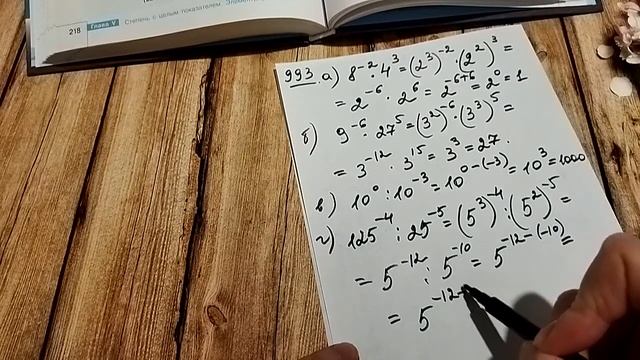 218 Глава V Степень с целым показателем.
993. а) 8⁻² · 4³ = (2³)⁻² · (2²)³ =
= 2⁻⁶ · 2⁶ = 2⁻⁶⁺⁶ = 2⁰ = 1
б) 9⁻⁶ · 27⁵ = (3²)⁻⁶ · (3³)⁵ =
= 3⁻¹² · 3¹⁵ = 3³ = 27.
в) 10⁰ : 10⁻³ = 10⁰⁻⁽⁻³⁾ = 10³ = 1000
г) 125⁻⁴ : 25⁻⁵ = (5³)⁻⁴ : (5²)⁻⁵ =
= 5⁻¹² : 5⁻¹⁰ = 5⁻¹²⁻⁽⁻¹⁰⁾ =
= 5⁻¹²